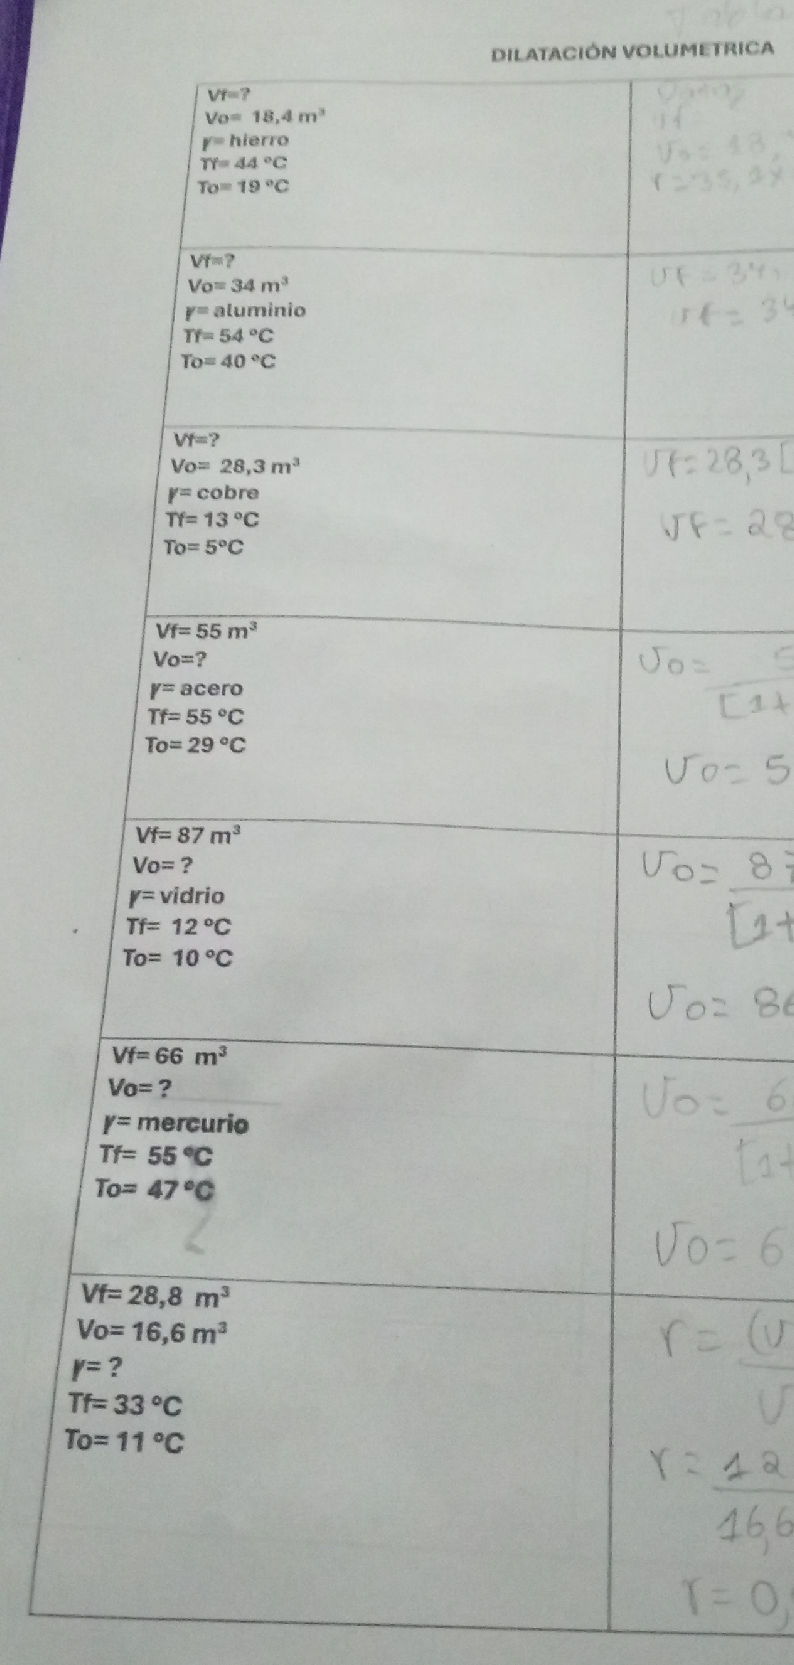 DILATACIÓN VOLUMETRICA
Vf=?
Vo= 18,4 m³
γ= hierro
Tf= 44 ºC
To= 19 ºC
Vf=?
Vo= 34 m³
γ= aluminio
Tf= 54 ºC
To= 40 ºC
Vf = 34
Vf = 34
Vf=?
Vo= 28,3 m³
γ= cobre
Tf= 13 ºC
To= 5ºC
Vf= 28,3 [
Vf = 28
Vf= 55 m³
Vo=?
γ= acero
Tf= 55 ºC
To= 29 ºC
Vo= 5
[1+
Vo= 5
Vf= 87 m³
Vo= ?
γ= vidrio
Tf= 12 ºC
To= 10 ºC
Vo= 87
[1+
Vo= 86
Vf= 66 m³
Vo= ?
γ= mercurio
Tf= 55 ºC
To= 47 ºC
Vo= 6
[1+
Vo= 6
Vf= 28,8 m³
Vo= 16,6 m³
γ= ?
Tf= 33 ºC
To= 11 ºC
r= (V
V
r= 12
16,6
r= 0,